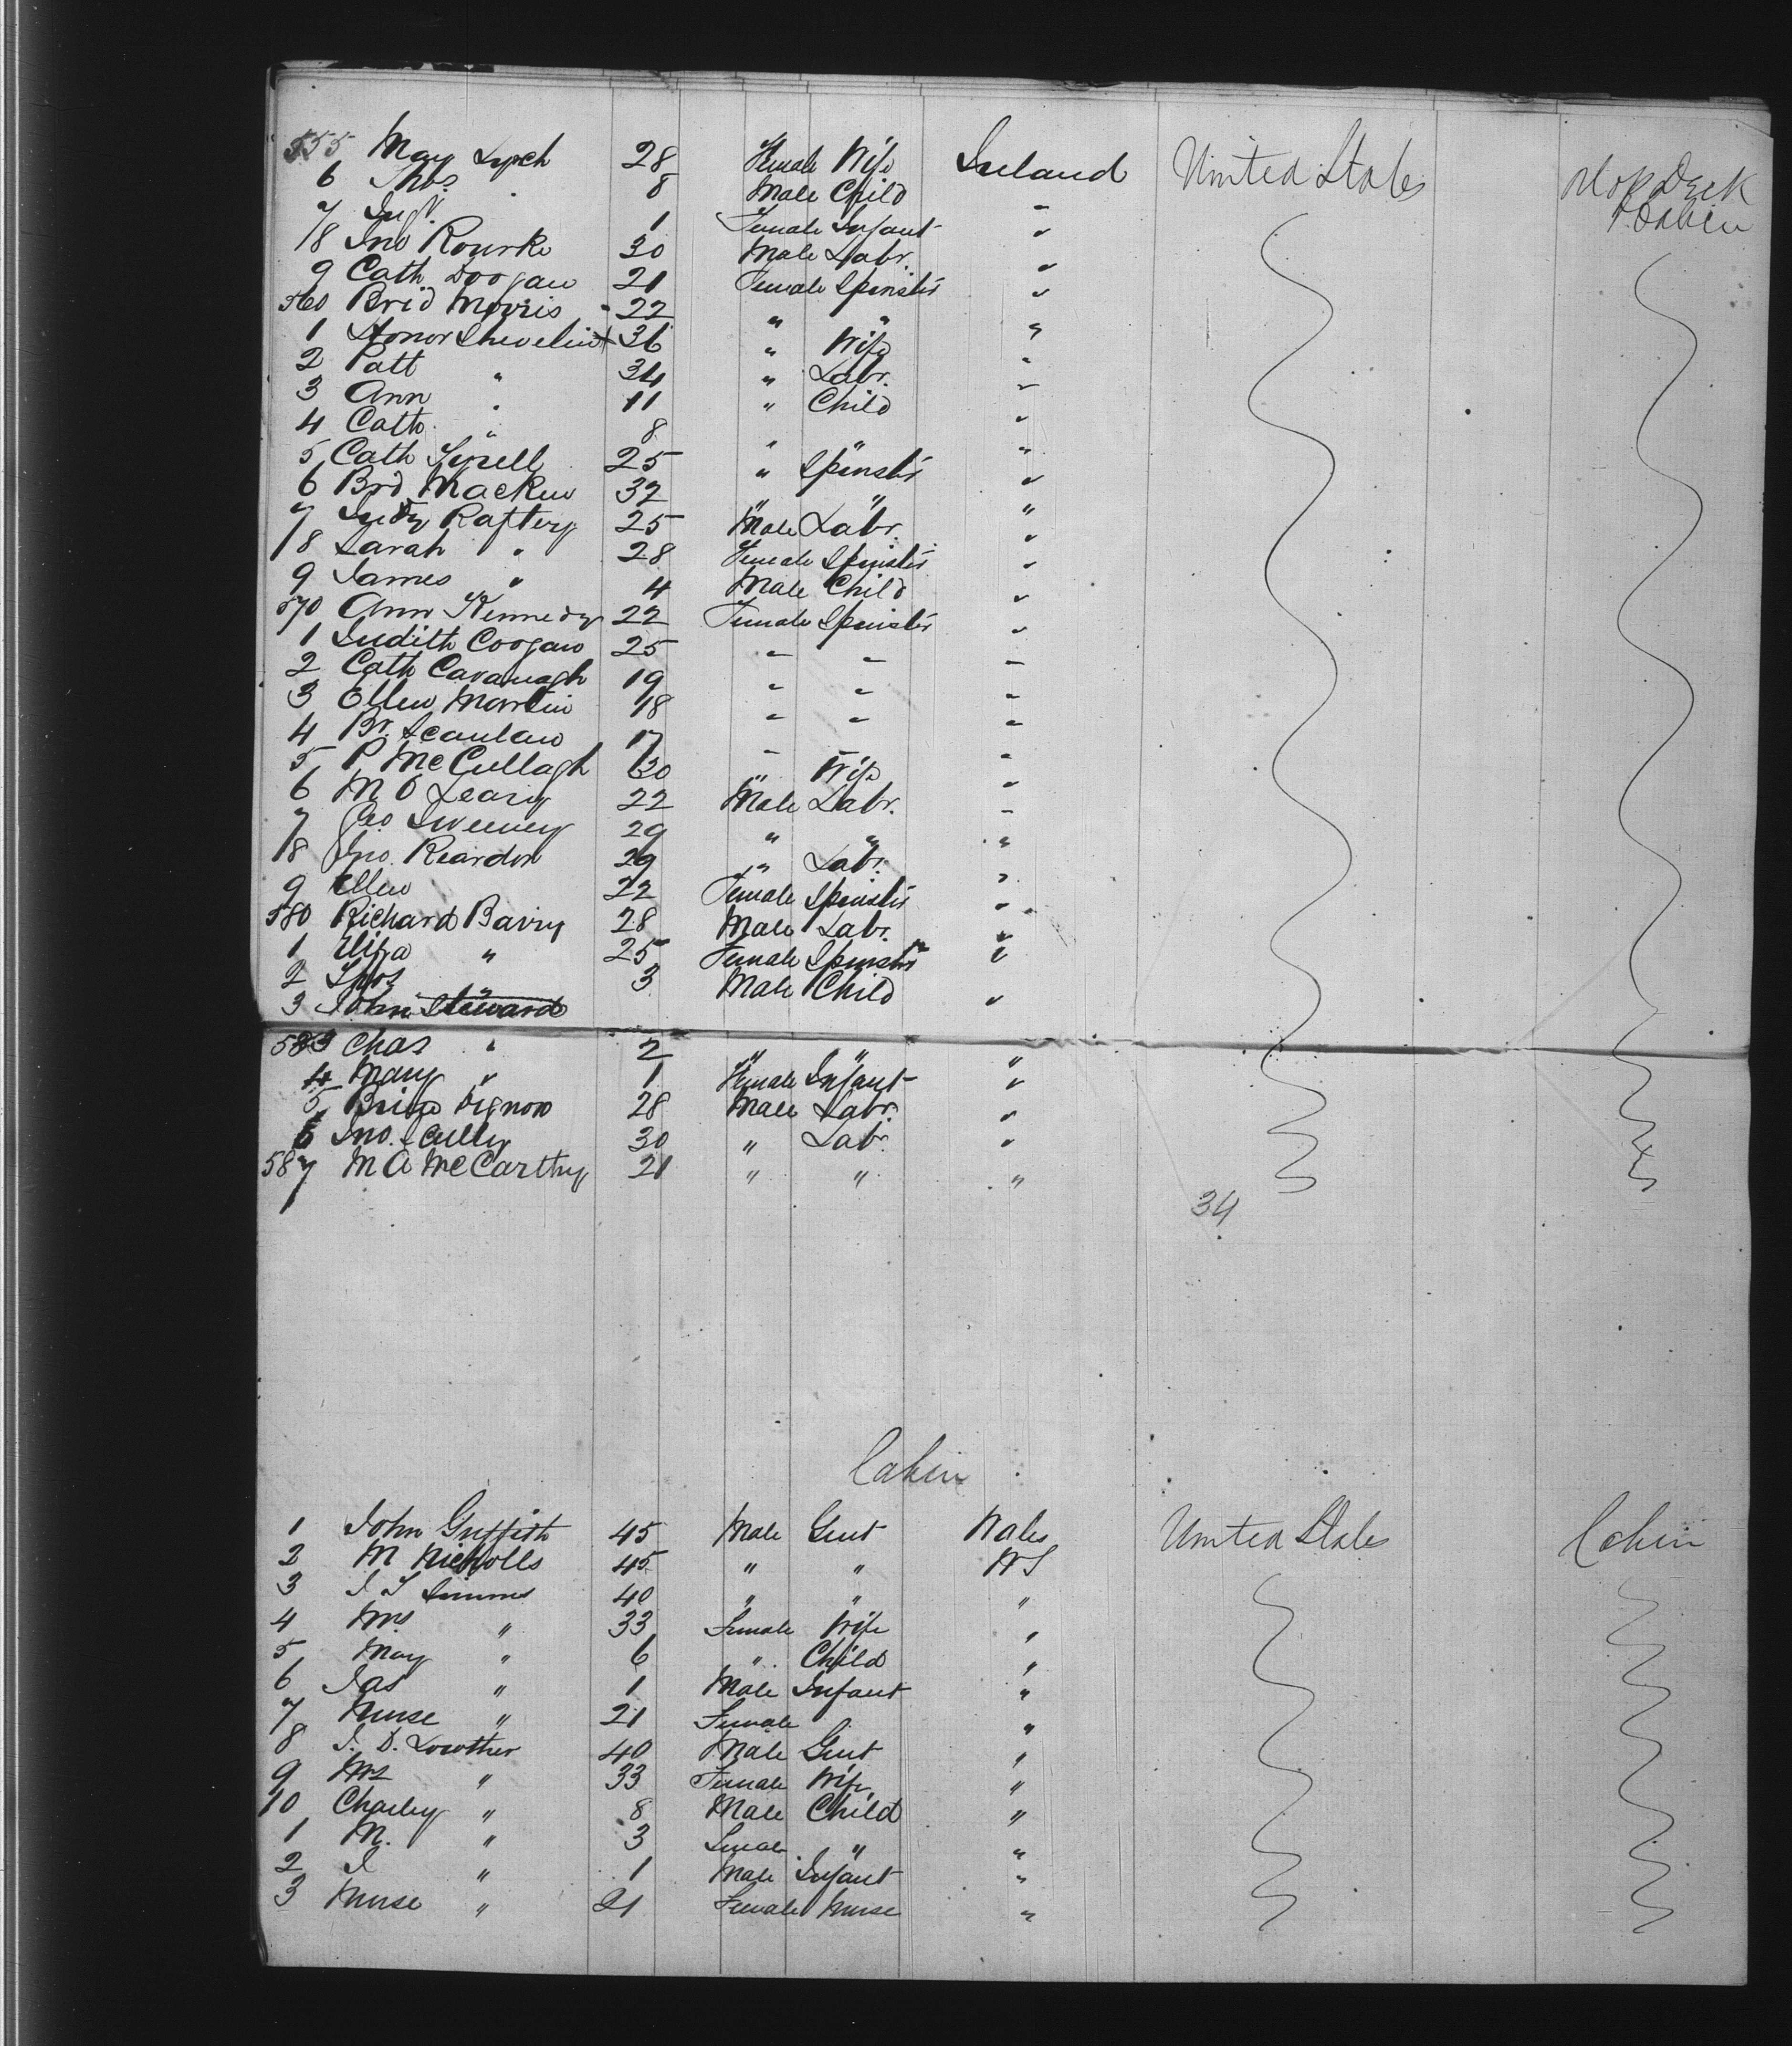 555 May Lynch 28 Female Wife Ireland United States
6 Thos. 8 Male Child "
7 Inft. 1 Female Infant "
8 Jno Rourke 30 Male Labr. "
9 Cath Doogan 21 Female Spinstr "
560 Brid Morris 22 " " "
1 Honor 36 " Wife "
2 Patt " 34 " Labr. "
3 Ann " 11 " Child "
4 Cath " 8 " " "
5 Cath 25 " Spinstr "
6 Brd Macken 32 " " "
7 Judy Raftery 25 Male Labr. "
8 Sarah " 28 Female Spinstr "
9 James " 4 Male Child "
570 Ann Kennedy 22 Female Spinstr "
1 Judith Coogan 25 " " "
2 Cath Cavanagh 19 " " "
3 Ellen Martin 18 " " "
4 Br. Scanlan 17 " " "
5 P McCullagh 30 " Wife "
6 M O Leary 22 Male Labr. "
7 Geo Sweeney 29 " " "
8 Jno. Reardon 29 " Labr. "
9 Ellen 22 Female Spinstr "
580 Richard Barry 28 Male Labr. "
1 Eliza " 25 Female Spinstr "
2 Thos " 3 Male Child "
3 John Steward
583 Chas " 2 " " "
4 Mary " 1 Female Infant "
5 Dignon 28 Male Labr. "
6 Jno. Scully 30 " Labr. "
587 M A McCarthy 21 " " "
34
Cabin
1 John Griffith 45 Male Gent Wales United States Cabin
2 M Nicholls 45 " "
3 J T Simms 40 " " "
4 Mrs " 33 Female Wife "
5 May " 6 " Child "
6 Jas " 1 Male Infant "
7 Nurse " 21 Female "
8 J. D. Lowther 40 Male Gent "
9 Mrs " 33 Female Wife "
10 Charley " 8 Male Child "
1 M. " 3 Female " "
2 J " 1 Male Infant "
3 Nurse " 21 Female Nurse "